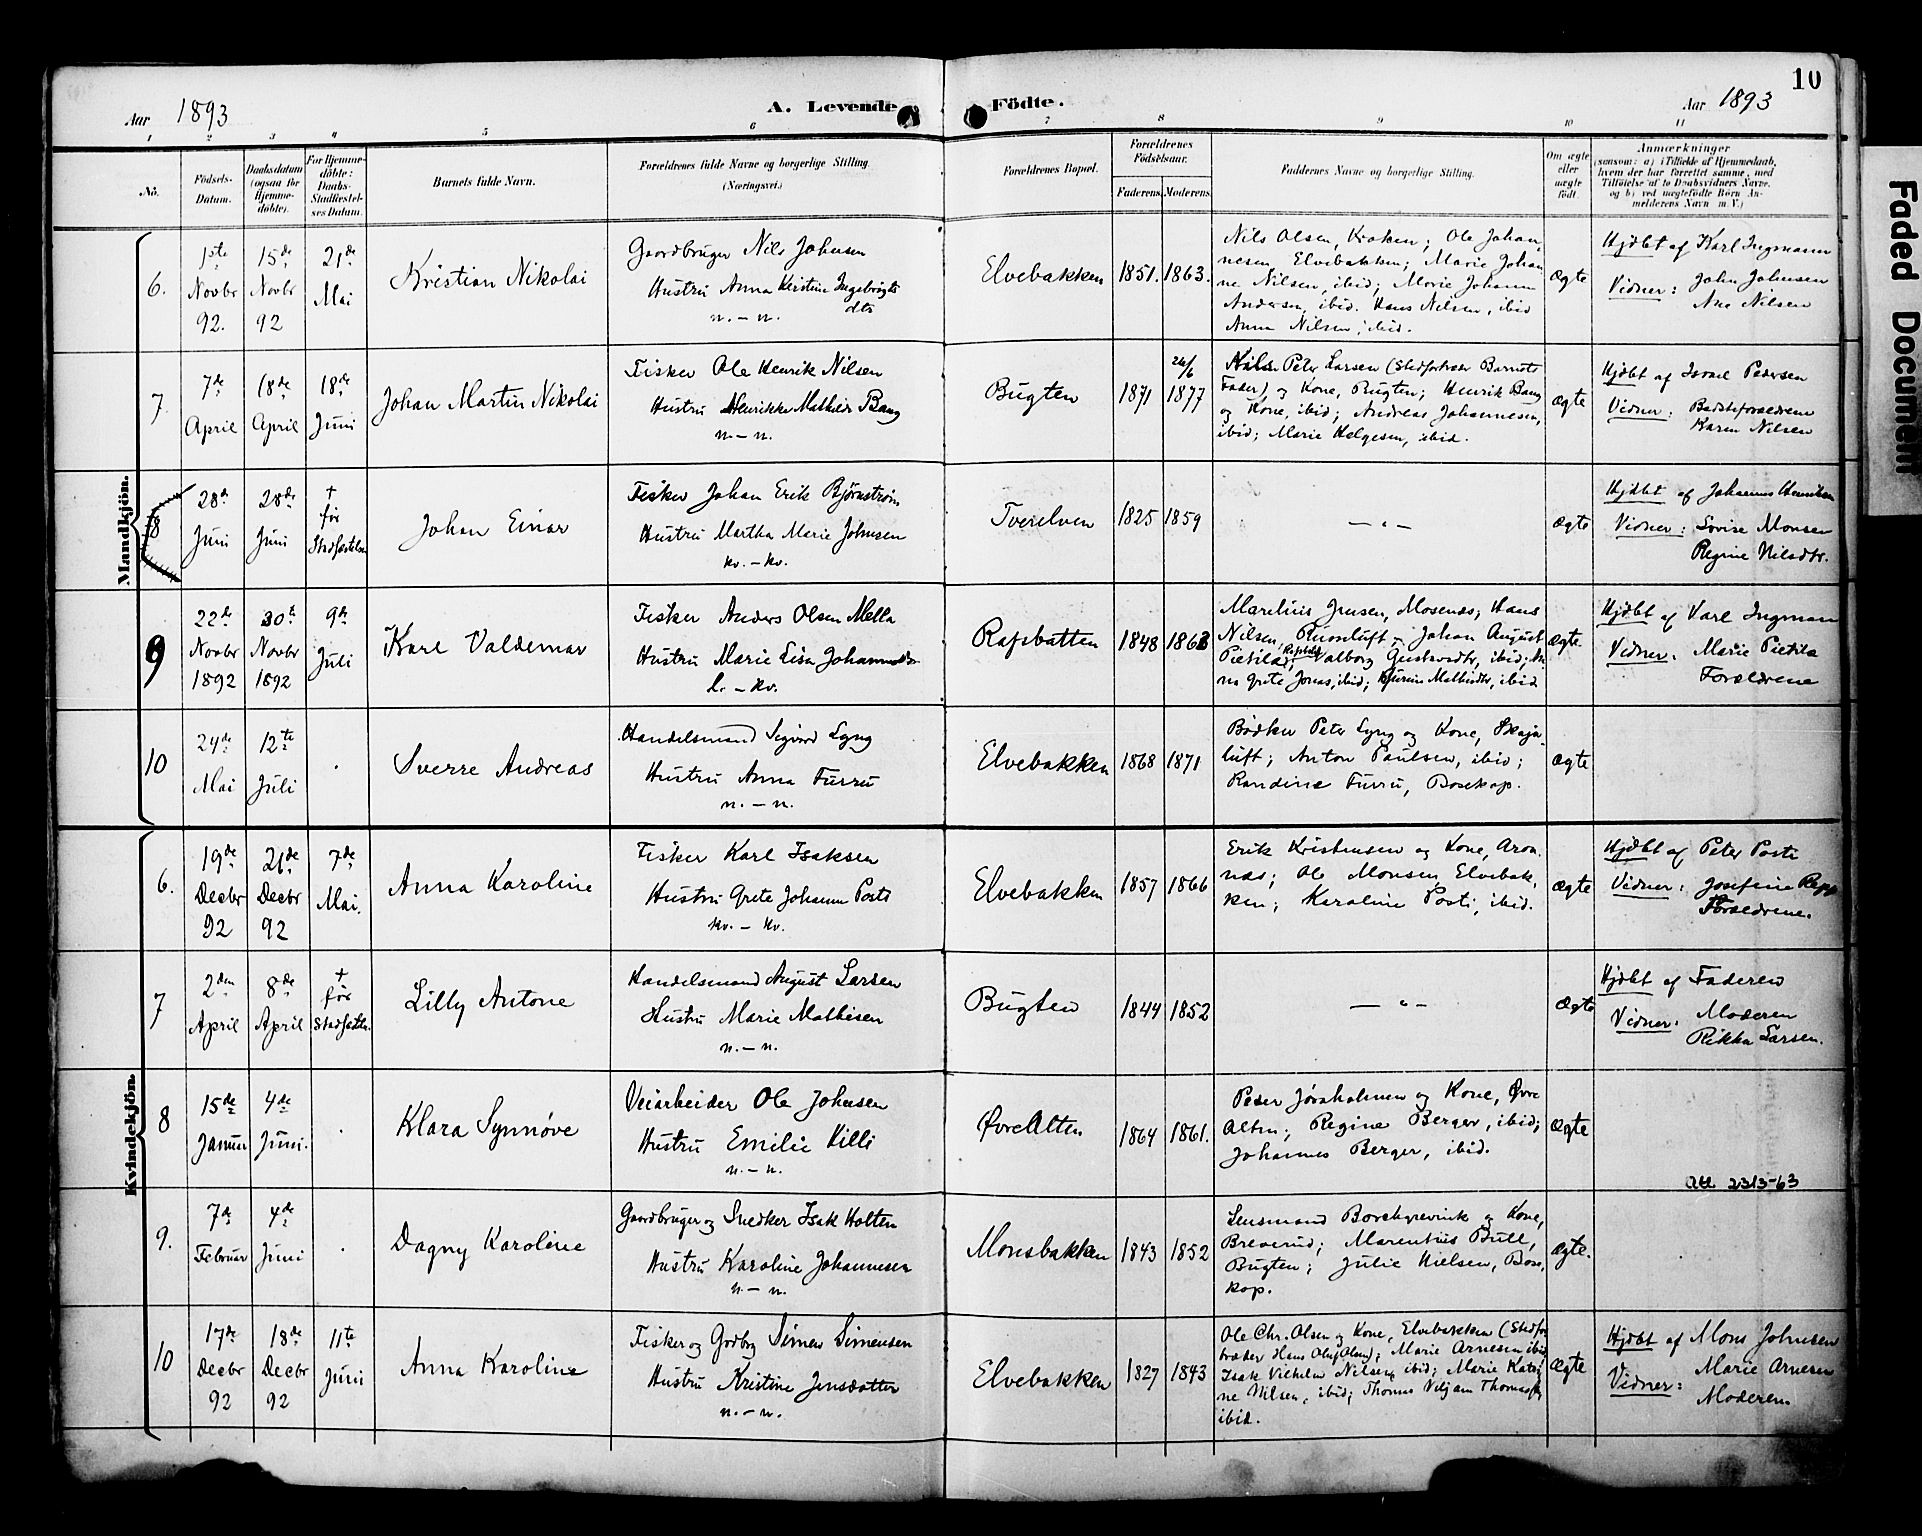 10
Aar 1893
A. Levende Födte.
Aar 1893
1 2 3 4 5 6 7 8 9 10 11
No.
Födsels-
Datum.
Daabsdatum
(ogsaa for
Hjemme-
döbte).
For Hjemme-
döbte:
Daabs-
Stadfæstel-
ses Datum.
Barnets fulde Navn.
Forældrenes fulde Navne og borgerlige Stilling.
(Næringsvei.)
Forældrenes Bopæl.
Forældrenes
Födselsaar.
Faderens Moderens
Faddernes Navne og borgerlige Stilling.
Om ægte
eller
uægte
födt.
Anmærkninger
(saasom: a) i Tilfælde af Hjemmedaab,
hvem der har forrettet samme, med
Tilföielse af to Daabsvidners Navne,
og b) ved uægtefödte Börn An-
melderens Navn m. V.)
Mandkjön.
6.
1ste
Novbr
92.
15de
Novbr
92
21de
Mai
Kristian Nikolai
Gaardbruger Nils Johnsen
Hustru Anna Kirstine Ingebrigts
dtr
n. - n.
Elvebakken
1851. 1863.
Nils Olsen, Kraken; Ole Johan-
nesen, Elvebakken; Marie Johan-
ne Nilsen, ibid; Marie Johanne
Andersen, ibid. Hans Nilsen, ibid
Anna Nilsen, ibid.
Ægte
Hjdbt af Karl Ingmann
Vidner: John Johnsen
Ane Nilsen
7
7de
April
18de
April
18de
Juni
Johan Martin Nikolai
Fisker Ole Henrik Nilsen
Hustru Henrikke Mathilde Bang
n. - n.
Bugten
1871
26/6
1877
Nils Peter Larsen (Stedfortræder Barnets
Fader) og Kone, Bugten; Henrik Bang
og Kone, ibid; Andreas Johannesen,
ibid; Marie Helgesen, ibid.
Ægte
Hjdbt af Israel Pedersen
Vidner: Bedsteforældrene
Karen Nilsen
8
28de
Juni
28de
Juni
†
før
Stadfæstelsen
Johan Einar
Fisker Johan Erik Bjørnstrøm
Hustru Martha Marie Johnsen
kv. - kv.
Tverelven
1825 1859
— " —
Ægte
Hjdbt af Johannes Henriksen
Vidner: Lovise Monsen
Regine Nilsdtr.
9
22de
Novbr
1892
30te
Novbr
1892
9de
Juli
Karl Valdemar
Fisker Anders Olsen Mella
Hustru Marie Lisa Johannesdtr
L. - kv.
Rafsbotten
1848 1863
Marelius Jensen, Mosenæs; Hans
Nilsen, Russeluft; Johan August
Pietilæ, Rafsbotn; Valborg Gustavsdtr, ibid; An-
na Grete Jonas, ibid;
Ægte
Hjdbt af Karl Ingman
Vidner: Marie Pietila
Forældrene
10
24de
Mai
12te
Juli
Sverre Andreas
Handelsmand Sigvard Lyng
Hustru Anna Furru
n. - n.
Elvebakken
1868 1871
Bødker Peter Lyng og Kone, Skaja-
luft; Anton Paulsen, ibid;
Randine Furru, Bosekop.
Ægte
Kvindekjön.
6.
19de
Decbr
92
21de
Decbr
92
7de
Mai.
Anna Karoline
Fisker Karl Isaksen
Hustru Grete Johanne Posti
kv. - kv.
Elvebakken
1857 1866
Erik Kristensen og Kone, Aron-
næs; Ole Monsen, Elvebak-
ken; Karoline Posti, ibid.
Ægte
Hjdbt af Peter Posti
Vidner: Josefine Repp
Forældrene.
7
2den
April
8de
April
†
før
Stadfæstn.
Lilly Antone
Handelsmand August Larsen
Hustru Marie Mathisen
n. - n.
Bugten
1844 1852
— " —
Ægte
Hjdbt af Faderen
Vidner: Moderen
Rikka Larsen.
8
15de
Januar
4de
Juni.
Klara Synnøve
Veiarbeider Ole Johnsen
Hustru Emilie Killi
n. - n.
Øvre Alten
1864 1861.
Peder Jøraholmen og Kone, Øvre
Alten; Regine Berger, ibid;
Johannes Berger, ibid.
Ægte
Att. 23/3-63
9.
7de
Februar
4de
Juni
Dagny Karoline
Gaardbruger og Snedker Isak Holten
Hustru Karoline Johannesen
n. - n.
Monsbakken
1843 1852
Lensmand Borchgrevink og Kone,
Breverud; Marentius Bull,
Bugten; Julie Nielsen, Bose-
kop.
Ægte.
10
17de
Decbr
92
18de
Decbr
92
11te
Juni
Anna Karoline
Fisker og Grdbrg Simen Simensen
Hustru Kristine Jensdatter
n. - n.
Elvebakken
1827 1843
Ole Chr. Olsen og Kone, Elvebakken (Stedfor-
træder Hans Oluf Olsen); Marie Arnesen ibid,
Isak Vilhelm Nilsen, ibid; Marie Katri-
ne Nilsen, ibid; Thomas Viljam Thomassen
ibid.
Ægte
Hjdbt af Mons Johnsen
Vidner: Marie Arnesen
Moderen.
Faded Document